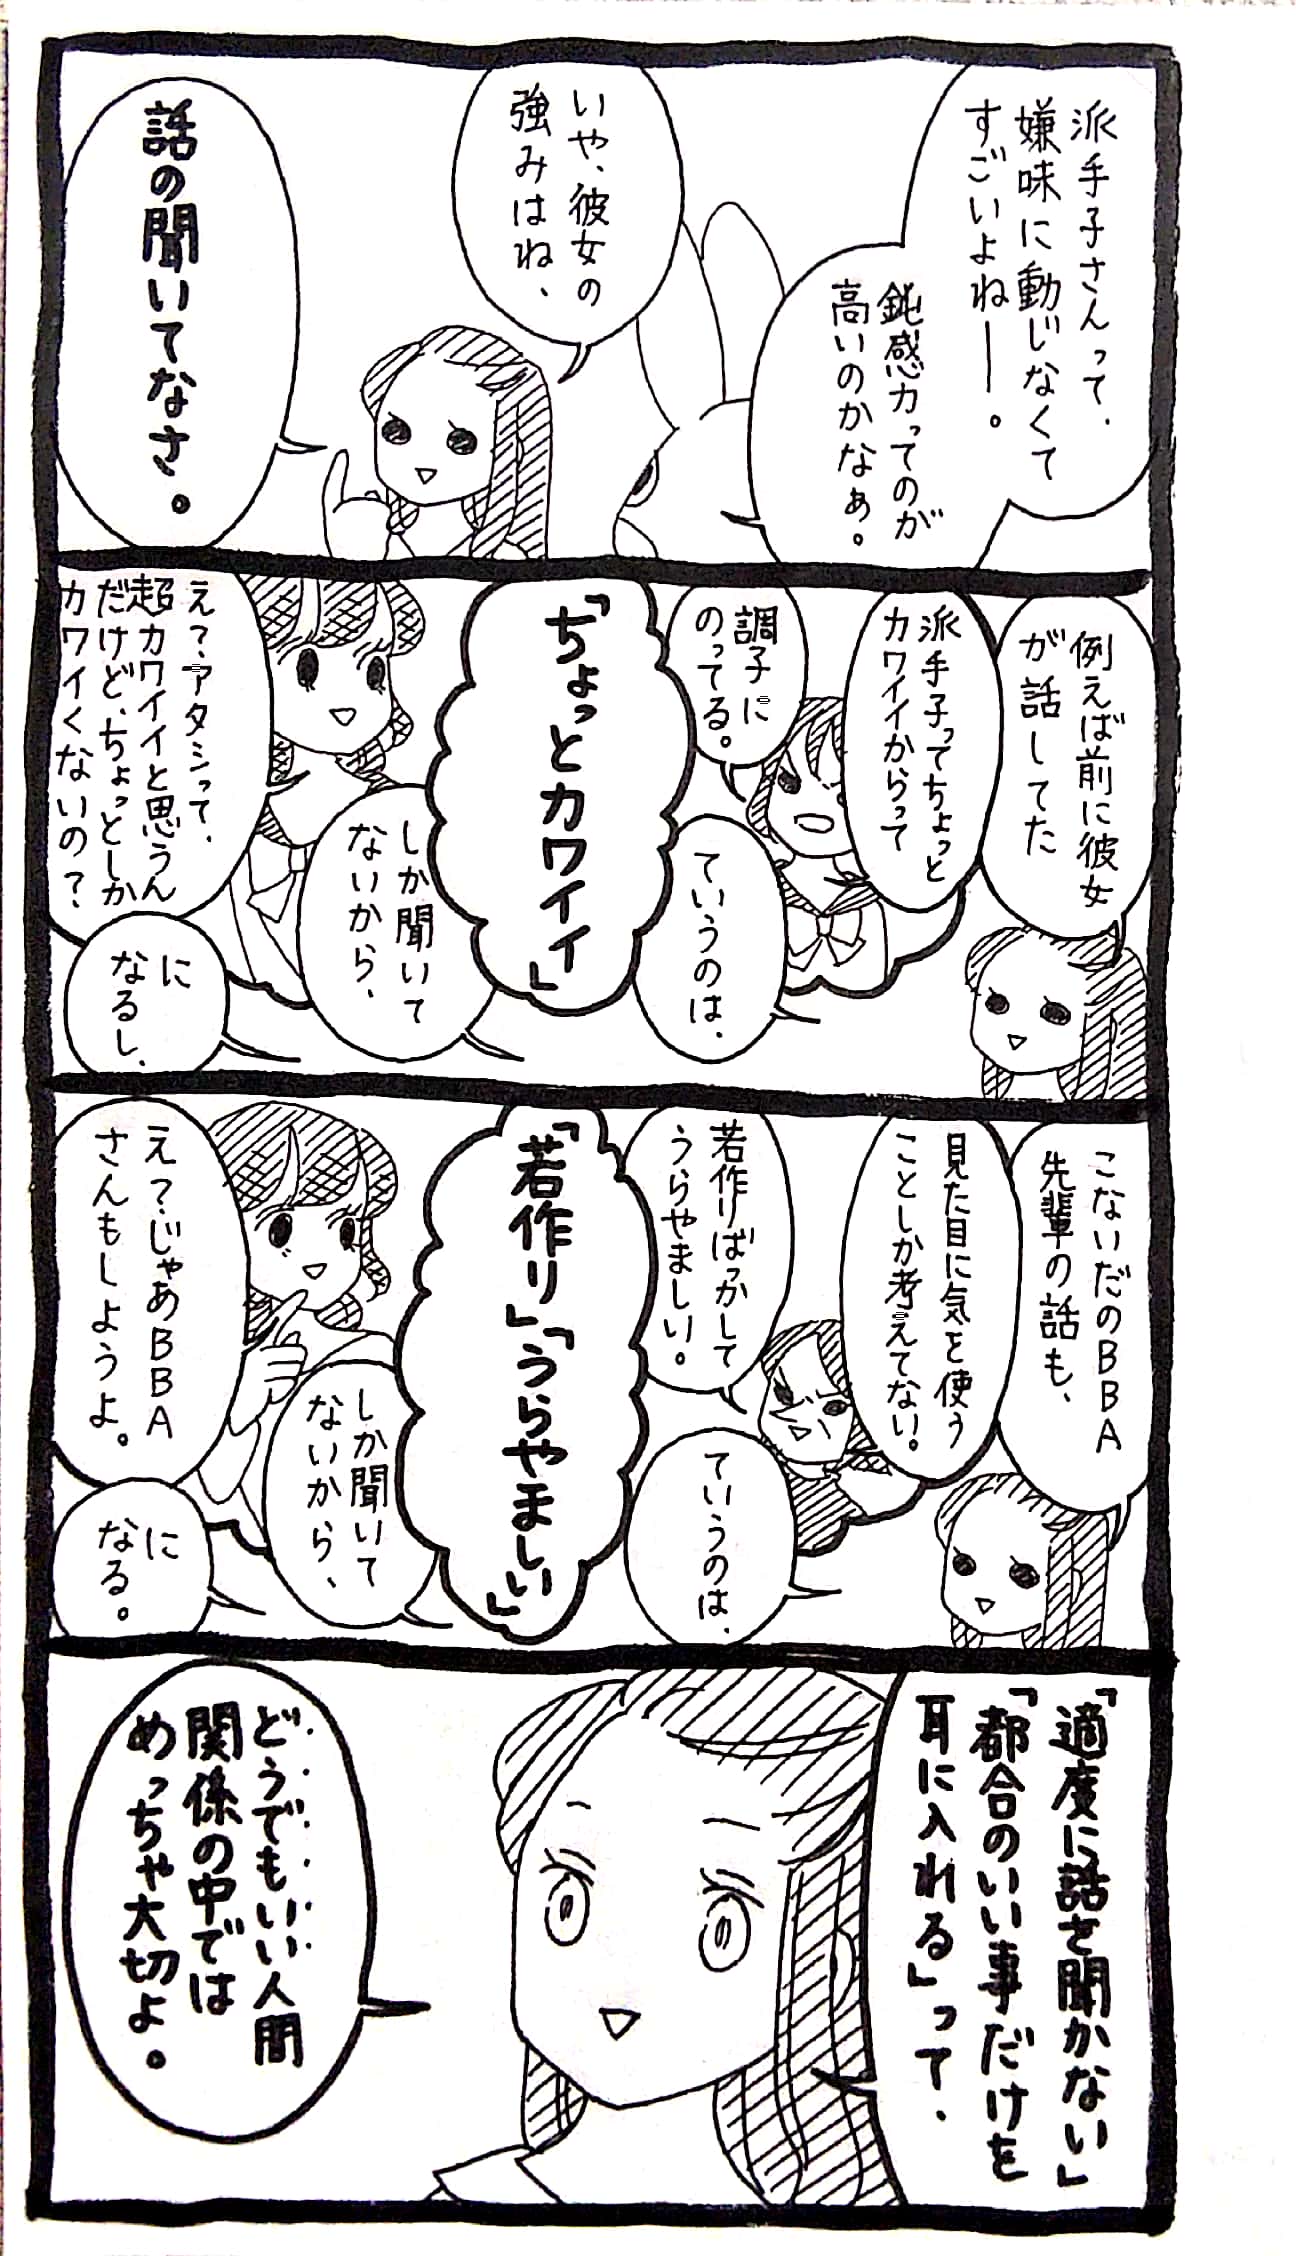 派手子さんって、
嫌味に動じなくて
すごいよねー。
鈍感力ってのが
高いのかなぁ。
いや、彼女の
強みはね、
話の聞いてなさ。
例えば前に彼女
が話してた
派手子ってちょっと
カワイイからって
調子に
のってる。
ていうのは、
「ちょっとカワイイ」
しか聞いて
ないから、
え?アタシって、
超カワイイと思うん
だけど、ちょっとしか
カワイくないの?
に
なるし、
こないだのBBA
先輩の話も、
見た目に気を使う
ことしか考えてない。
若作りばっかして
うらやましい。
ていうのは、
「若作り」「うらやましい」
しか聞いて
ないから、
え?じゃあBBA
さんもしようよ。
に
なる。
「適度に話を聞かない」
「都合のいい事だけを
耳に入れる」って、
どうでもいい人間
関係の中では
めっちゃ大切よ。